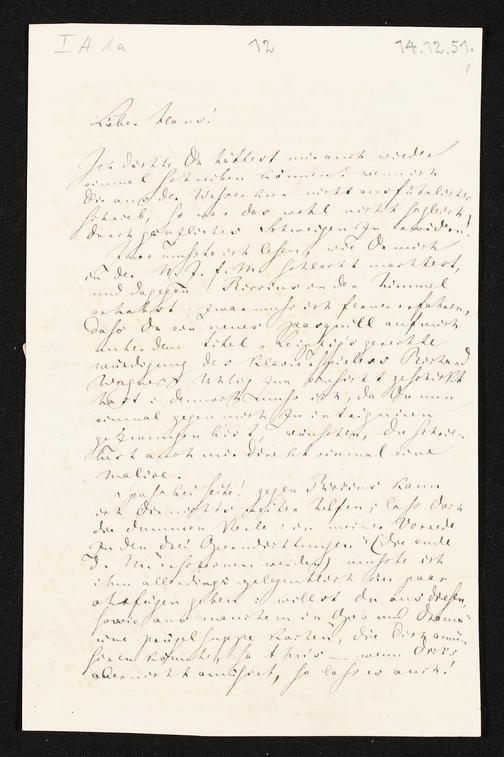 I A 1a
12
14.12.51.
1
Lieber Hans!
Ich dächte, Du hättest mir auch wieder
einmal schreiben können: wenn ich
Dir aus der Wasserkur nicht ausführlicher
schrieb, so war das wohl nicht sogleich
durch gänzliches Schweigen zu erwidern!
Zwar mußte ich lesen, wie Du mich
in der N. Z. f. M. schlecht machtest,
und dagegen in den Himmel
erhobst; zwar muß ich ferner erfahren,
daß Du ein neues Pasquill auf mich
unter dem Titel "Leipzig's gerechte
würdigung des Klavierspielers Richard
Wagner" Uhlig zur Ansicht geschickt
hast: dennoch muß ich, da Du nun
einmal gegen mich zu intriguiren
gezwungen bist, wünschen, Du schrie-
best auch mir direkt einmal eine
Malice.
Spaß bei Seite! gegen kann
ich Dir nicht weiter helfen; laß Dich
den dummen Kerle: in meiner Vorrede
zu den drei Operndichtungen (die ende
d. M. erscheinen werden) mußte ich
ihm allerdings gelegentlich ein paar
ohrfeigen geben: willst Du aus diesen,
sowie aus manchem in Oper und Drama
eine prügelsuppe kochen, die Dich amü-
siren könnte, so thu's — wenn Dich's
aber nicht amüsirt, so laß es auch!